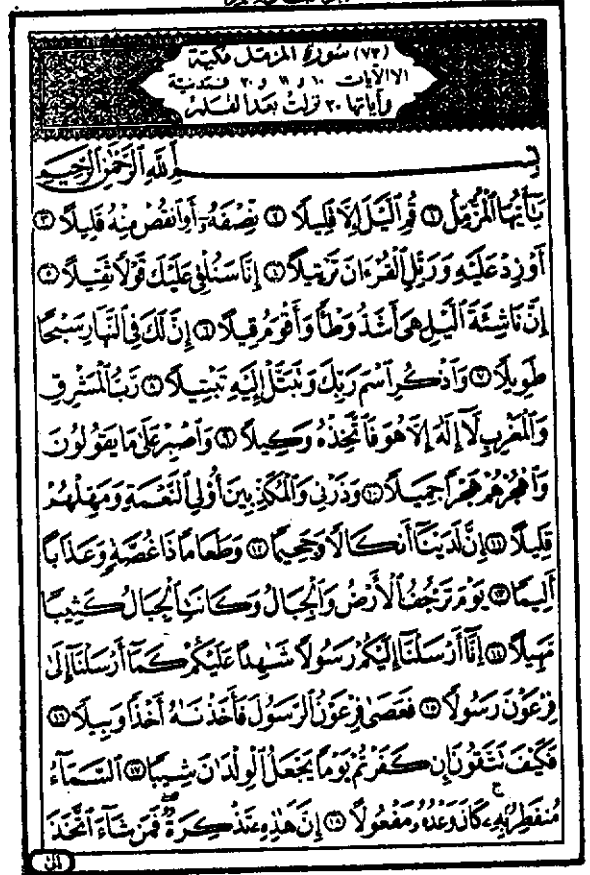 (٧٣) سُورَةُ المزّمّل مَكيّة
الا الآيات ١٠ و ١١ و ٢٠ فمدنية
وآياتها ٢٠ نزلتْ بَعدَ القَلم
بِسْمِ ٱللَّهِ ٱلرَّحْمَٰنِ ٱلرَّحِيمِ
يَٰٓأَيُّهَا ٱلْمُزَّمِّلُ ١ قُمِ ٱلَّيْلَ إِلَّا قَلِيلًا ٢ نِّصْفَهُۥٓ أَوِ ٱنقُصْ مِنْهُ قَلِيلًا ٣
أَوْ زِدْ عَلَيْهِ وَرَتِّلِ ٱلْقُرْءَانَ تَرْتِيلًا ٤ إِنَّا سَنُلْقِي عَلَيْكَ قَوْلًا ثَقِيلًا ٥
إِنَّ نَاشِئَةَ ٱلَّيْلِ هِىَ أَشَدُّ وَطْـًٔا وَأَقْوَمُ قِيلًا ٦ إِنَّ لَكَ فِى ٱلنَّهَارِ سَبْحًا
طَوِيلًا ٧ وَٱذْكُرِ ٱسْمَ رَبِّكَ وَتَبَتَّلْ إِلَيْهِ تَبْتِيلًا ٨ رَّبُّ ٱلْمَشْرِقِ
وَٱلْمَغْرِبِ لَآ إِلَٰهَ إِلَّا هُوَ فَٱتَّخِذْهُ وَكِيلًا ٩ وَٱصْبِرْ عَلَىٰ مَا يَقُولُونَ
وَٱهْجُرْهُمْ هَجْرًا جَمِيلًا ١٠ وَذَرْنِى وَٱلْمُكَذِّبِينَ أُو۟لِى ٱلنَّعْمَةِ وَمَهِّلْهُمْ
قَلِيلًا ١١ إِنَّ لَدَيْنَآ أَنكَالًا وَجَحِيمًا ١٢ وَطَعَامًا ذَا غُصَّةٍ وَعَذَابًا
أَلِيمًا ١٣ يَوْمَ تَرْجُفُ ٱلْأَرْضُ وَٱلْجِبَالُ وَكَانَتِ ٱلْجِبَالُ كَثِيبًا
مَّهِيلًا ١٤ إِنَّآ أَرْسَلْنَآ إِلَيْكُمْ رَسُولًا شَٰهِدًا عَلَيْكُمْ كَمَآ أَرْسَلْنَآ إِلَىٰ
فِرْعَوْنَ رَسُولًا ١٥ فَعَصَىٰ فِرْعَوْنُ ٱلرَّسُولَ فَأَخَذْنَٰهُ أَخْذًا وَبِيلًا ١٦
فَكَيْفَ تَتَّقُونَ إِن كَفَرْتُمْ يَوْمًا يَجْعَلُ ٱلْوِلْدَٰنَ شِيبًا ١٧ ٱلسَّمَآءُ
مُنفَطِرٌۢ بِهِۦ ۚ كَانَ وَعْدُهُۥ مَفْعُولًا ١٨ إِنَّ هَٰذِهِۦ تَذْكِرَةٌ ۖ فَمَن شَآءَ ٱتَّخَذَ
إلى